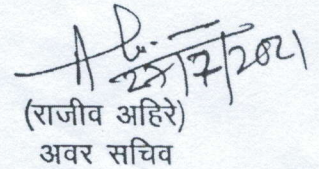 27/7/2021
(राजीव अहिरे)
अवर सचिव